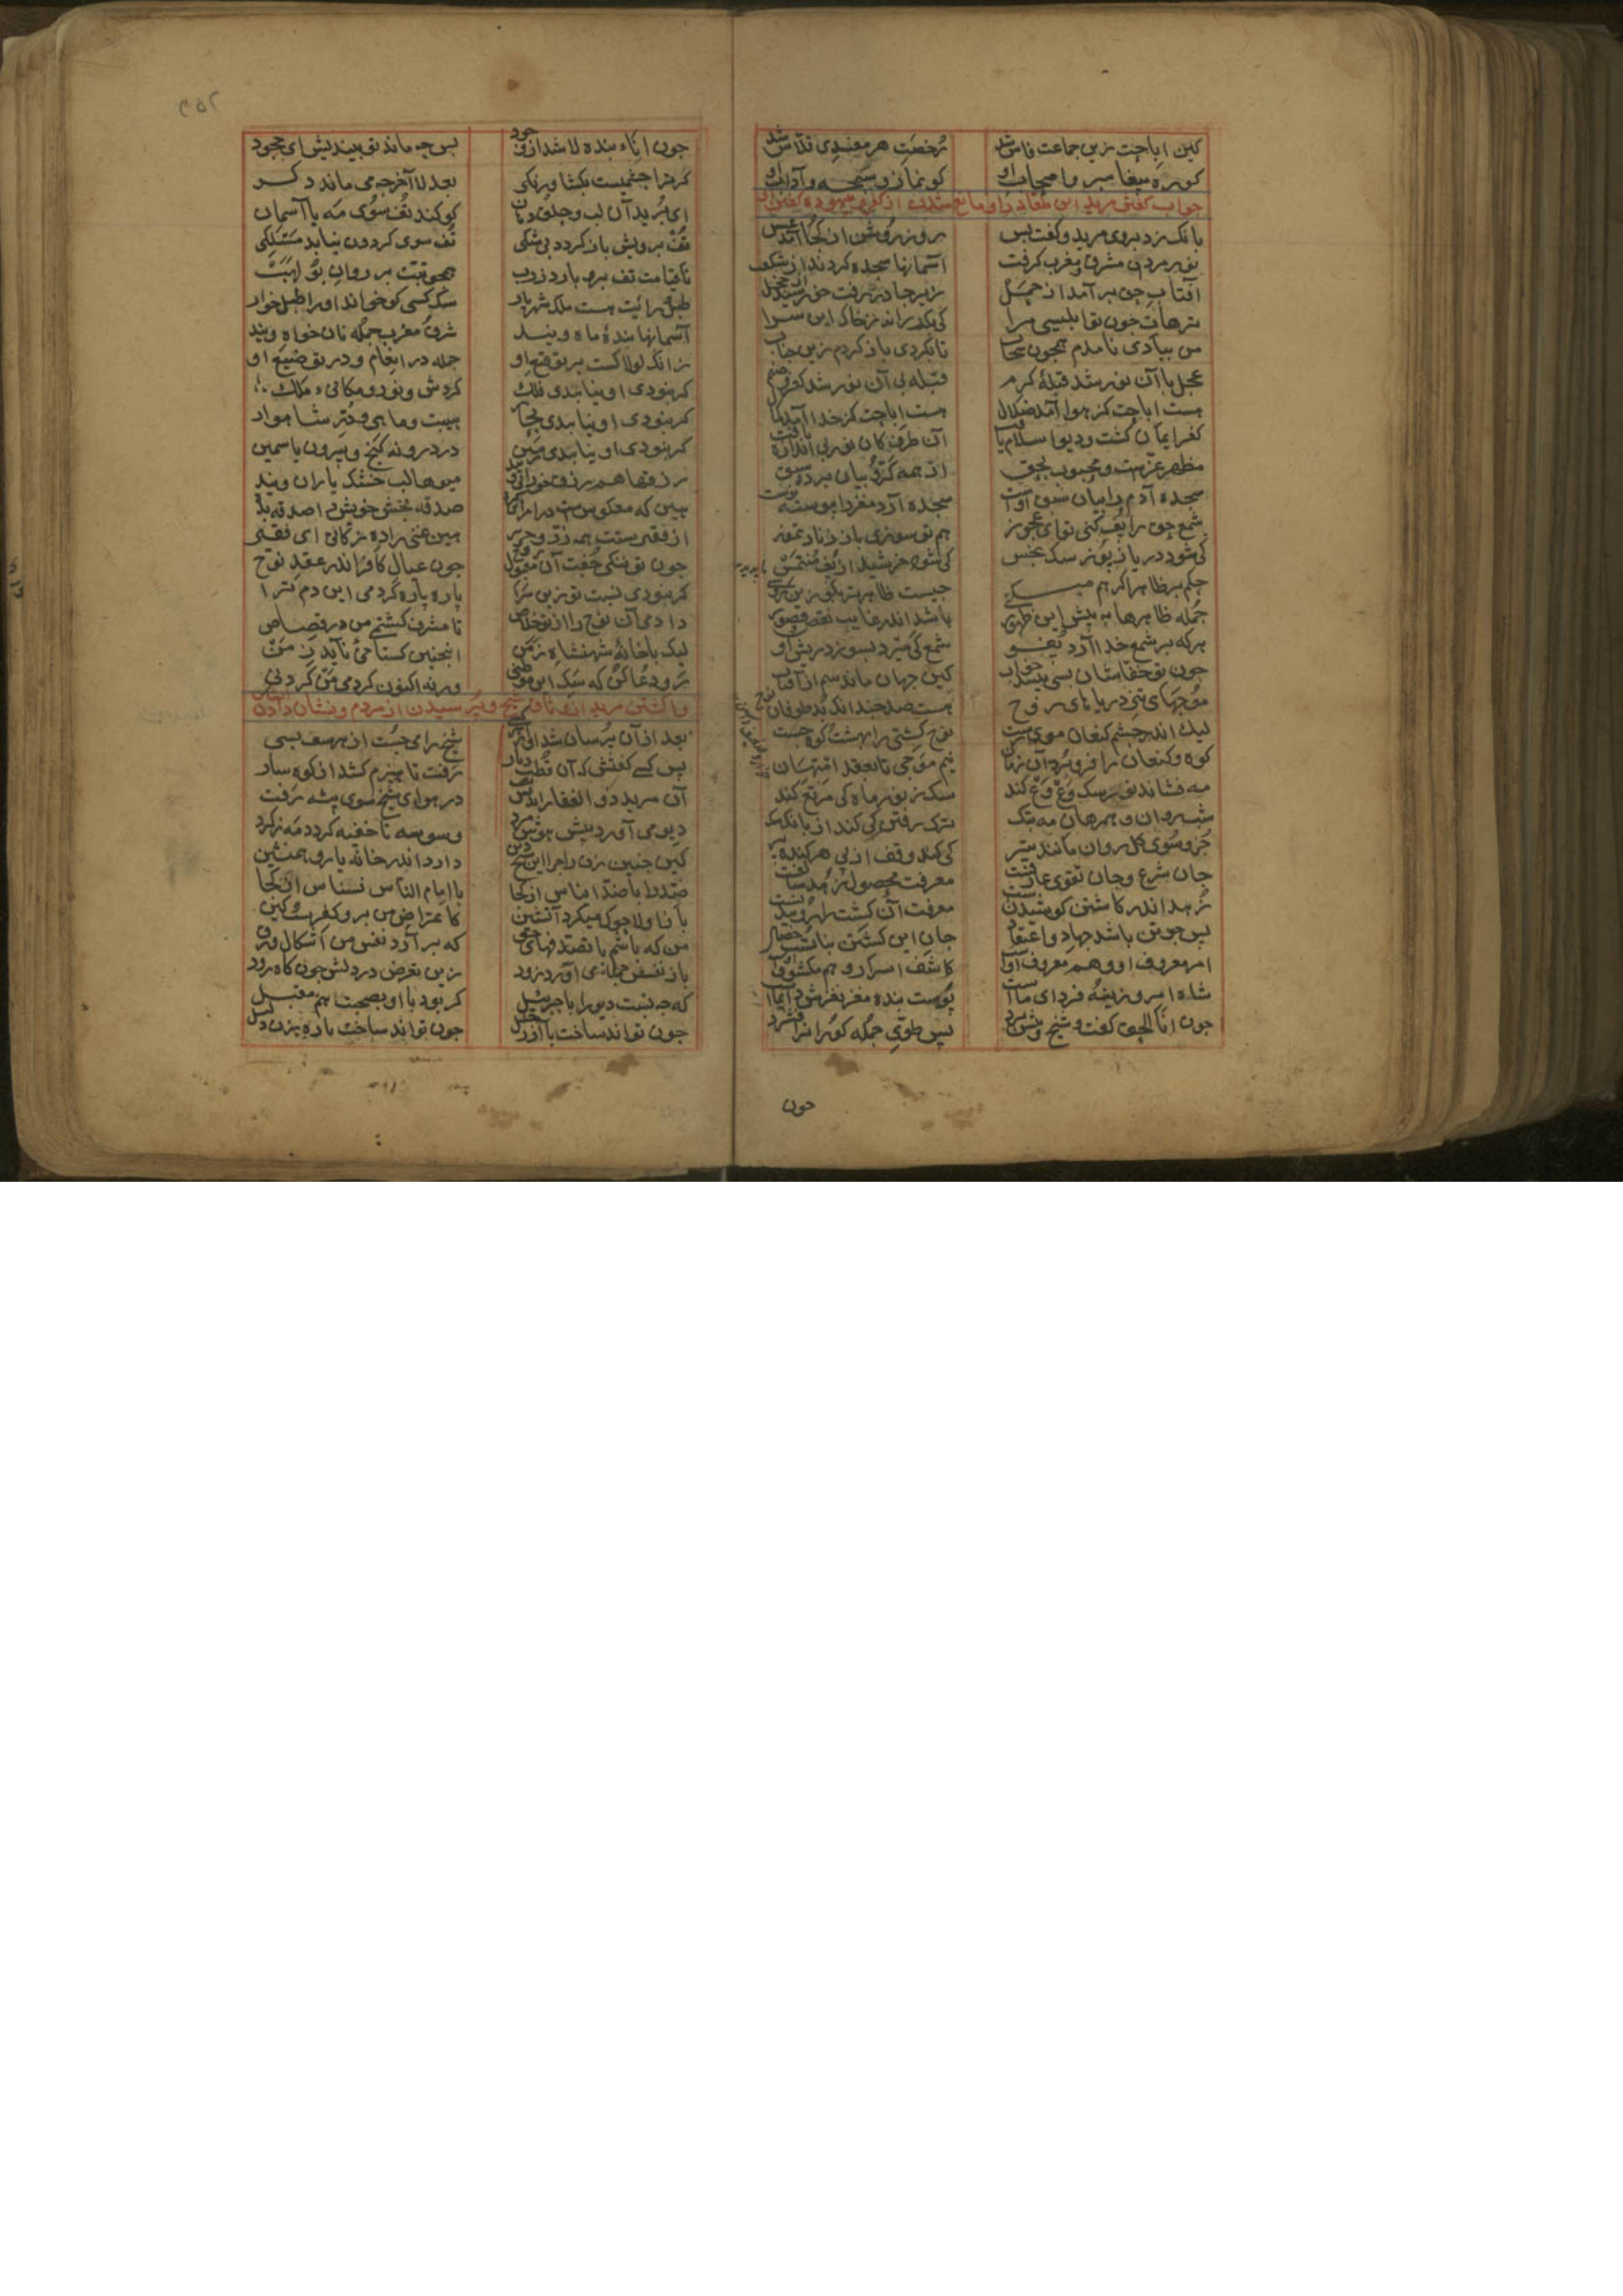 کین اباحت زین جماعت فاش شد رخصت هر مفسدی قلاش شد
کو ره پیغامبر و اصحاب او کو نماز و سبحه و آداب او
جواب گفتن مرید این طعانه را و مانع شدن از کفر و بیهوده گفتن
بانک زد بر وی مرید و گفت بس روز روشن از کجا آمد عسس
نور مردان مشرق و مغرب گرفت آسمانها سجده کردند از شگفت
آفتاب حق بر آمد از حمل زیر چادر رفت خورشید از خجل
ترهات چون تو ابلیسی مرا کی بگرداند ز خاک این سرا
من ببادی نامدم همچون سحاب تا بگردی باز گردم زین جناب
عجل با آن نور شد قبله کرم قبله بی آن نور شد کفر و صنم
هست اباحت کز هوا آمد ضلال هست اباحت کز خدا آمد کمال
کفر ایمان گشت و دیو اسلام یافت آن طرف کان نور بی اندازه تافت
مظهر عزست و محبوب بحق از همه کروبیان برده سبق
سجده آدم را بیان سبق اوست سجده آرد مغز را پیوسته پوست
شمع حق را پف کنی تو ای عجوز هم تو سوزی هم سرت ای گنده پوز
کی شود دریا ز پوز سک نجس کی شود خرشید از پف منطمس
حکم بر ظاهر اگر هم میکنی چیست ظاهرتر بگو زین روشنی
جمله ظاهرها به پیش این ظهور باشد اندر غایت نقص و قصور
هر که بر شمع خدا آرد پفو شمع کی میرد بسوزد ریش او
چون تو خفاشان بسی بینند خواب کین جهان ماند یتیم از آفتاب
موجهای تیز دریاهای روح هست صد چندانک بد طوفان نوح
لیک اندر چشم کنعان موی رست نوح کشتی را بهشت کوه جست
کوه و کنعان را فرو برد آن زمان نیم موجی تا بقعر امتهان
مه فشاند نور و سک وغ وغ کند سک ز نور ماه کی مرتع کند
شب روان و همرهان مه بتک ترک رفتن کی کند از بانک سک
جزو سوی کل روان مانند تیر کی کند وقف از پی هر گنده پیر
جان شرع و جان تقوی عارفست معرفت محصول زهد سالفست
زهد اندر کاشتن کوشیدنست معرفت آن کشت را روییدنست
پس چو تن باشد جهاد و اعتقاد جان این کشتن نباتست و حصاد
امر معروف او و هم معروف اوست کاشف اسرار و هم مکشوف اوست
شاه امروزینه و فردای ماست پوست بنده مغز نغزش دایماست
چون انا الحق گفت شیخ و پیش برد پس گلوی جمله کوران را فشرد
چون
چون انای بنده لا شد از وجود پس چه ماند تو بیندیش ای جحود
گر ترا چشمیست بگشا و بنگر بعد لا آخر چه می ماند دگر
ای بریده آن لب و حلق و دهان کو کند تف سوی مه یا آسمان
تف برویش باز گردد بی شکی تف سوی گردون نیابد مسلکی
تا قیامت تف برو بارد ز رب همچو تبت بر روان بو لهب
طبل و رایت هست ملک شهریار سک کسی کو خواند او را طبل خوار
آسمانها بنده ماه ویند شرق و مغرب جمله نان خواه ویند
زانک لولاکست بر توقیع او جمله در انعام و در توزیع او
گر نبودی او نیابیدی فلک گردش و نور و مکانی ملک
گر نبودی او نیابیدی بحار هیبت و ماهی و در شاهوار
گر نبودی او نیابیدی زمین در درونه گنج و بیرون یاسمین
رزقها هم رزق خواران ویند میوها لب خشک باران ویند
هین که معکوس است در امر این گره صدقه بخش خویش را صدقه بده
از فقیرستت همه زر و حریر هین غنی را ده زکاتی ای فقیر
چون تو ننگی جفت آن مقبول روح چون عیال کافر اندر عقد نوح
گر نبودی نسبت تو زین سرا پاره پاره کردمی این دم ترا
دادمی آن نوح را از تو خلاص تا مشرف گشتمی من در قصاص
لیک با خانه شهنشاه زمن اینچنین گستاخی ناید ز من
رو دعا کن که سک این موطنی ورنه اکنون کردمی من کردنی
وا گشتن مرید از وثاق شیخ و پرسیدن از مردم و نشان دادن
بعد از آن پرسان شد او از هر کسی شیخ را می جست از هر سو بسی
پس کسی گفتش که آن قطب دیار رفت تا هیزم کشد از کوهسار
آن مرید ذو الفقار اندیش تفت در هوای شیخ سوی بیشه رفت
دیو می آورد پیش هوش مرد وسوسه تا خفیه گردد مه ز گرد
کین چنین زن را چرا این شیخ دین دارد اندر خانه یار و همنشین
ضد را با ضد ایناس از کجا با امام الناس نسناس از کجا
باز او لاحول میکرد آتشین کاعتراض من برو کفرست و کین
من که باشم با تصرفهای حق که بر آرد نفس من اشکال و دق
باز نفسش حمله می آورد زود زین تعرض در دلش چون کاه دود
که چه نسبت دیو را با جبرئیل که بود با او بصحبت هم مقیل
چون تواند ساخت با آزر خلیل چون تواند ساخت با ره زن دلیل